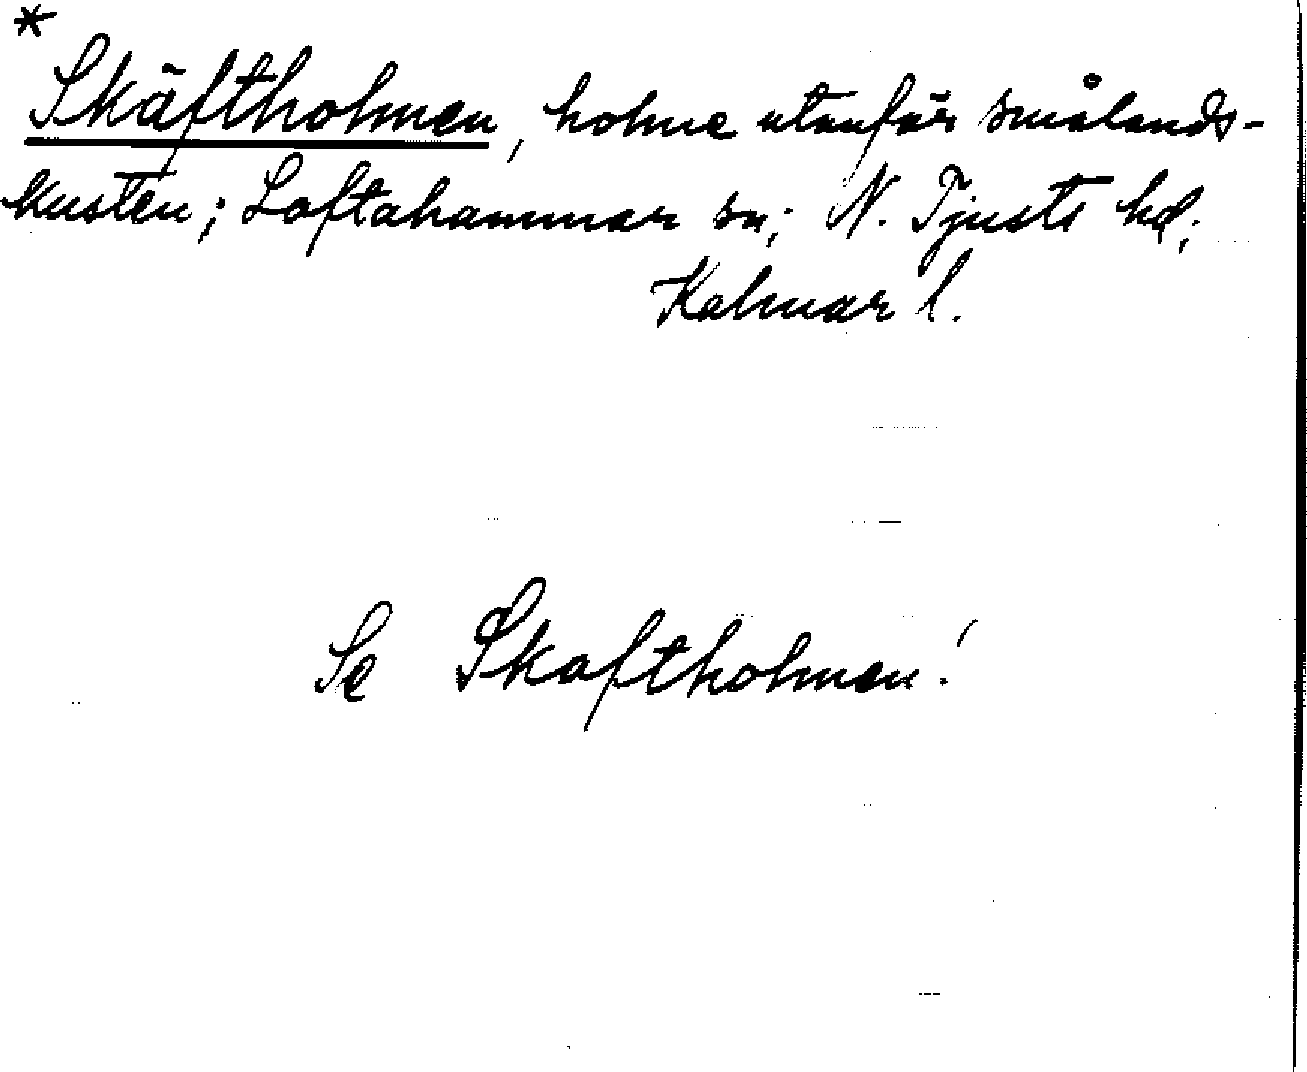 *
Skäftholmen, holme utanför smålands-
kusten; Loftahammar sn; N. Tjusts hd;
Kalmar l.
Se Skaftholmen!